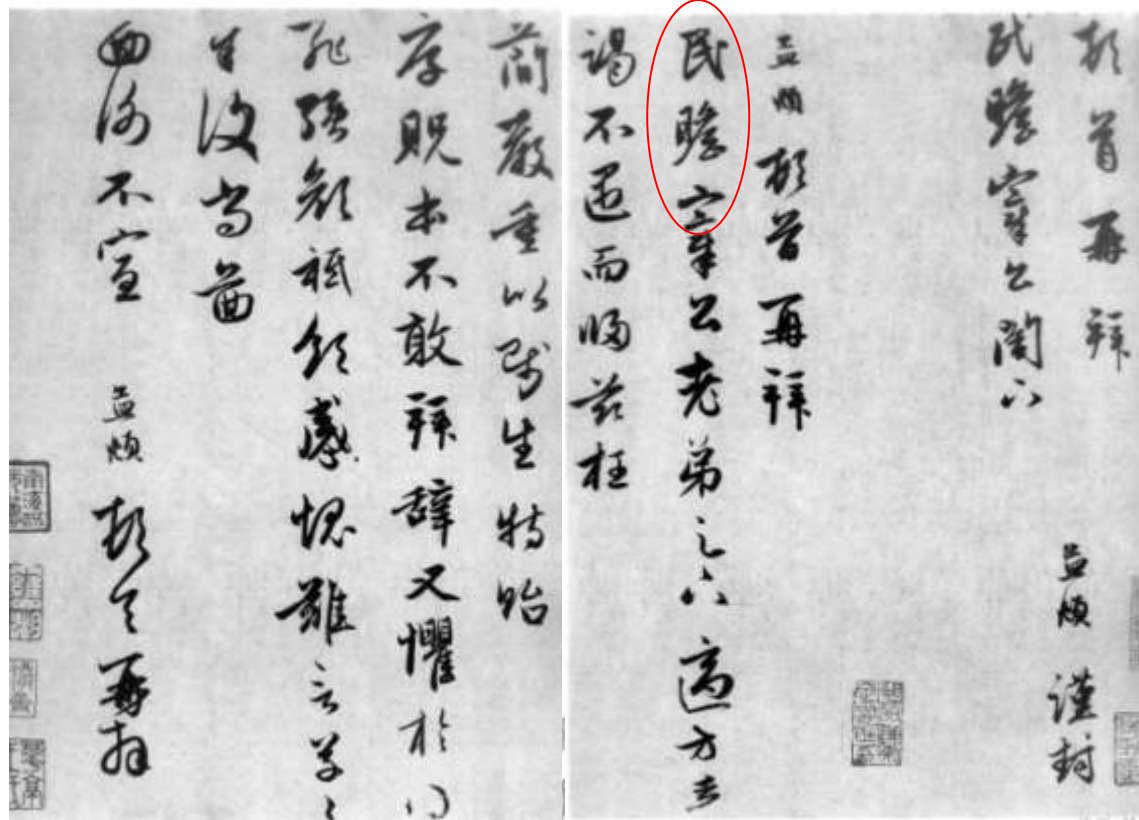 頓首再拜
民瞻宰公閣下
孟頫謹封
孟頫頓首再拜
民瞻宰公老弟足下適方去
謁不遇而歸茲枉
簡嚴重以惠生特貽
厚貺本不敢拜辭又懼於以
孔強顏祗領感愧難言草々
生後當啚
面謝不宣 孟頫頓首再拜